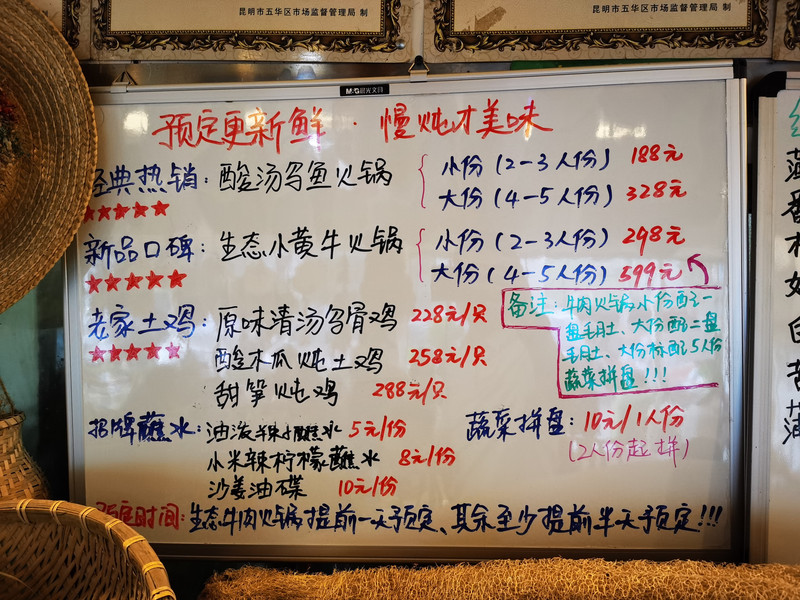 昆明市五华区市场监督管理局 制
昆明市五华区市场监督管理局 制
M&G 晨光文具
预定更新鲜·慢炖才美味
经典热销：酸汤乌鱼火锅
小份（2-3人份）188元
大份（4-5人份）328元
新品口碑：生态小黄牛火锅
小份（2-3人份）298元
大份（4-5人份）599元
备注：牛肉火锅小份配一
盘毛肚、大份配二盘
毛肚、大份标配5人份
蔬菜拼盘!!!
老家土鸡：原味清汤乌骨鸡 228元/只
酸木瓜炖土鸡 258元/只
甜笋炖鸡 288元/只
招牌蘸水：油泼辣子蘸水 5元/份
小米辣柠檬蘸水 8元/份
沙姜油碟 10元/份
蔬菜拼盘：10元/1人份
（2人份起拼）
预定时间：生态牛肉火锅提前一天预定、其余至少提前半天预定!!!